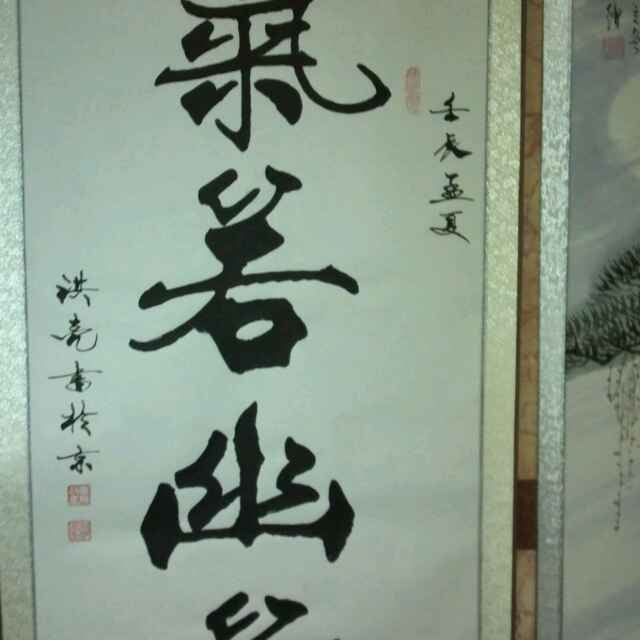 壬辰孟夏
氣若幽
洪亮書於京